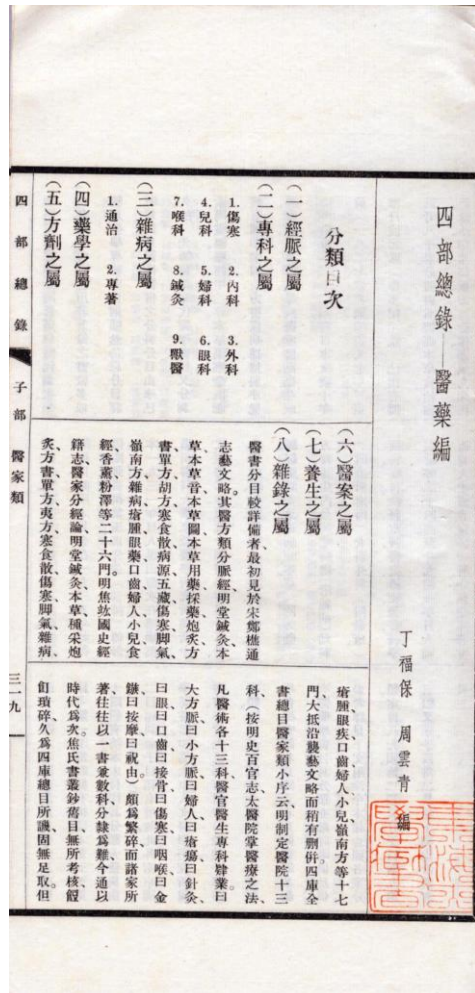 四部總錄——醫藥編
丁福保 周雲青 編
分類目次
(一)經脈之屬
(二)專科之屬
1.傷寒 2.內科 3.外科
4.兒科 5.婦科 6.眼科
7.喉科 8.鍼灸 9.獸醫
(三)雜病之屬
1.通治 2.專著
(四)藥學之屬
(五)方劑之屬
(六)醫案之屬
(七)養生之屬
(八)雜錄之屬
醫書分目較詳備者最初見於宋鄭樵通
志藝文略。其醫方類分脈經、明堂鍼灸、本
草、本草音、本草圖、本草用藥、採藥、炮炙、方
書、單方、胡方、寒食散、病源、五藏、傷寒、脚氣、
嶺南方、雜病、瘡腫、眼藥、口齒、婦人、小兒、食
經、香薰、粉澤等二十六門。明焦竑國史經
籍志醫家分經論、明堂鍼灸、本草、種采炮
炙、方書、單方、夷方、寒食散、傷寒、脚氣、雜病、
瘡腫、眼疾、口齒、婦人、小兒、嶺南方等十七
門。大抵沿襲藝文略而稍有刪併。四庫全
書總目醫家類小序云、明制定醫院十三
科、（按明史百官志太醫院掌醫療之法、
凡醫術各十三科、醫官醫生專科肄業。曰
大方脈、曰小方脈、曰婦人、曰瘡瘍、曰針灸、
曰眼、曰口齒、曰接骨、曰傷寒、曰咽喉、曰金
鏃、曰按摩、曰祝由）頗爲繁碎。而諸家所
著、往往以一書兼數科、分隸爲難。今通以
時代爲次。焦氏書叢鈔舊目、無所考核、餖
飣瑣碎、久爲四庫總目所譏、固無足取。但
四部總錄
子部 醫家類
三一九